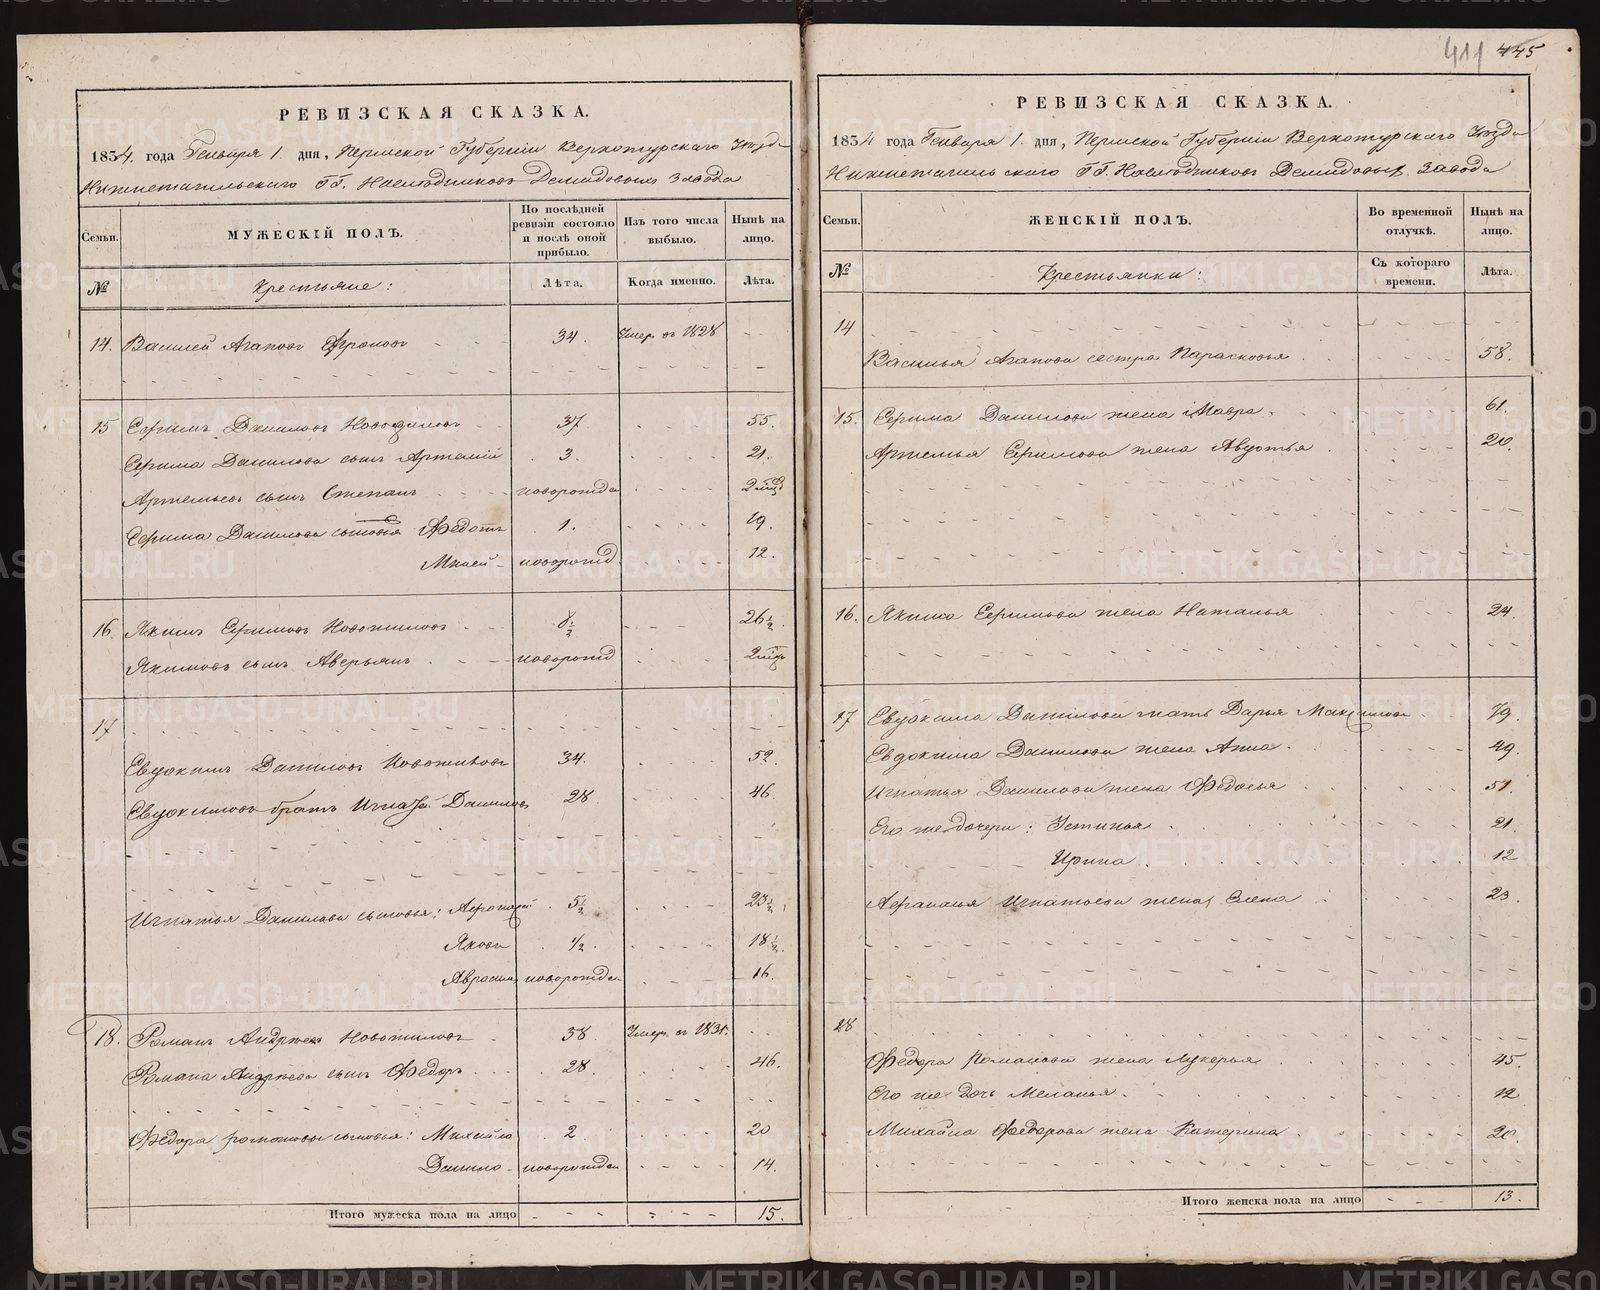 411 445
РЕВИЗСКАЯ СКАЗКА.
1834. года Генваря 1. дня, Пермской Губерніи Верхотурскаго Уѣзда
Нижнетагильскаго ГГ. Наслѣдниковъ Демидовыхъ завода
Семьи.
МУЖЕСКІЙ ПОЛЪ.
По послѣдней ревизіи состояло и послѣ оной прибыло.
Изъ того числа выбыло.
Нынѣ на лицо.
№
Крестьяне:
Лѣта.
Когда именно.
Лѣта.
14. Василей Агаповъ Фроловъ 34. Умер. въ 1828
15 Ефимъ Даниловъ Новожиловъ 37 55.
Ефима Данилова сынъ Артемій 3. 21.
Артемьевъ сынъ Степанъ новорожде 2 мѣс
Ефима Данилова сыновья Федотъ 1. 19.
новорожд. 12.
16. Якимъ Ефимовъ Новожиловъ 8½ 26½.
Якимовъ сынъ Аверьянъ новорожд 2 мѣс
17
Евдокимъ Даниловъ Новожиловъ 34. 52.
Евдокимовъ братъ Игнатей Даниловъ 28 46.
Игнатья Данилова сыновья: 5½ 23½
Яковъ ½. 18½.
новорожде. 16.
18. Романъ Андреевъ Новожиловъ 38 Умер. въ 1831.
Романа Андреева сынъ Федоръ 28. 46.
Федора романовы сыновья: Михайло 2 20
Данило новорожден 14.
Итого мужеска пола на лицо 15.
РЕВИЗСКАЯ СКАЗКА.
1834 года Генваря 1. дня, Пермской Губерніи Верхотурскаго Уѣзда
Нижнетагильскаго ГГ. Наслѣдниковъ Демидовыхъ завода
Семьи.
ЖЕНСКІЙ ПОЛЪ.
Во временной отлучкѣ.
Нынѣ на лицо.
№
Крестьянки:
Съ котораго времени.
Лѣта.
14
Василья Агапова сестра Парасковья 58.
15. Ефима Данилова жена Мавра. 61.
Артемья Ефимова жена Авдотья 20.
16. Якима Ефимова жена Наталья 24.
17 Евдокима Данилова мать Дарья Максимова 79.
Евдокима Данилова жена Анна. 49.
Игнатья Данилова жена Федосья 51.
Его же дочери: Устинья 21.
Ирина 12
Игнатьева жена Елена 23.
28
Федора Романова жена Лукерья 45.
Его же дочь Меланья. 12
Михайла Федорова жена Катерина 20.
Итого женска пола на лицо 13.
METRIKI.GASO-URAL.RU